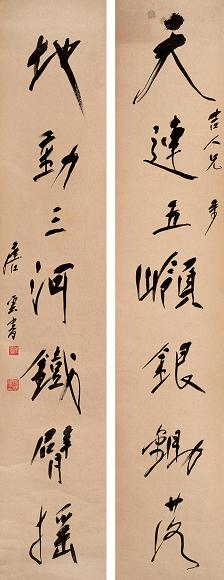 天連五嶺銀鋤落
吉人兄
地動三河鐵臂搖
唐雲書